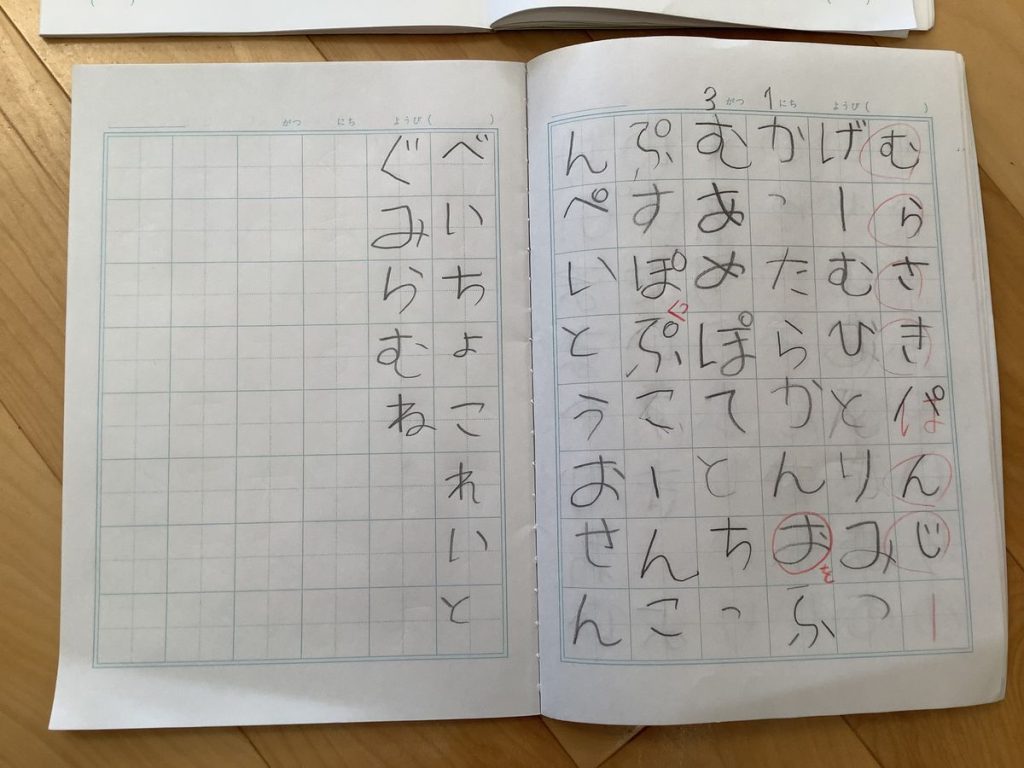 3 がつ 1 にち ようび( )
むらさきぱんじー
げーむひとりみつ
かったらかんおふ
を
むあめぽてとちっ
ぷすぽぷこーんこ
っ
んぺいとうおせん
がつ にち ようび( )
べいちょこれいと
ぐみらむね